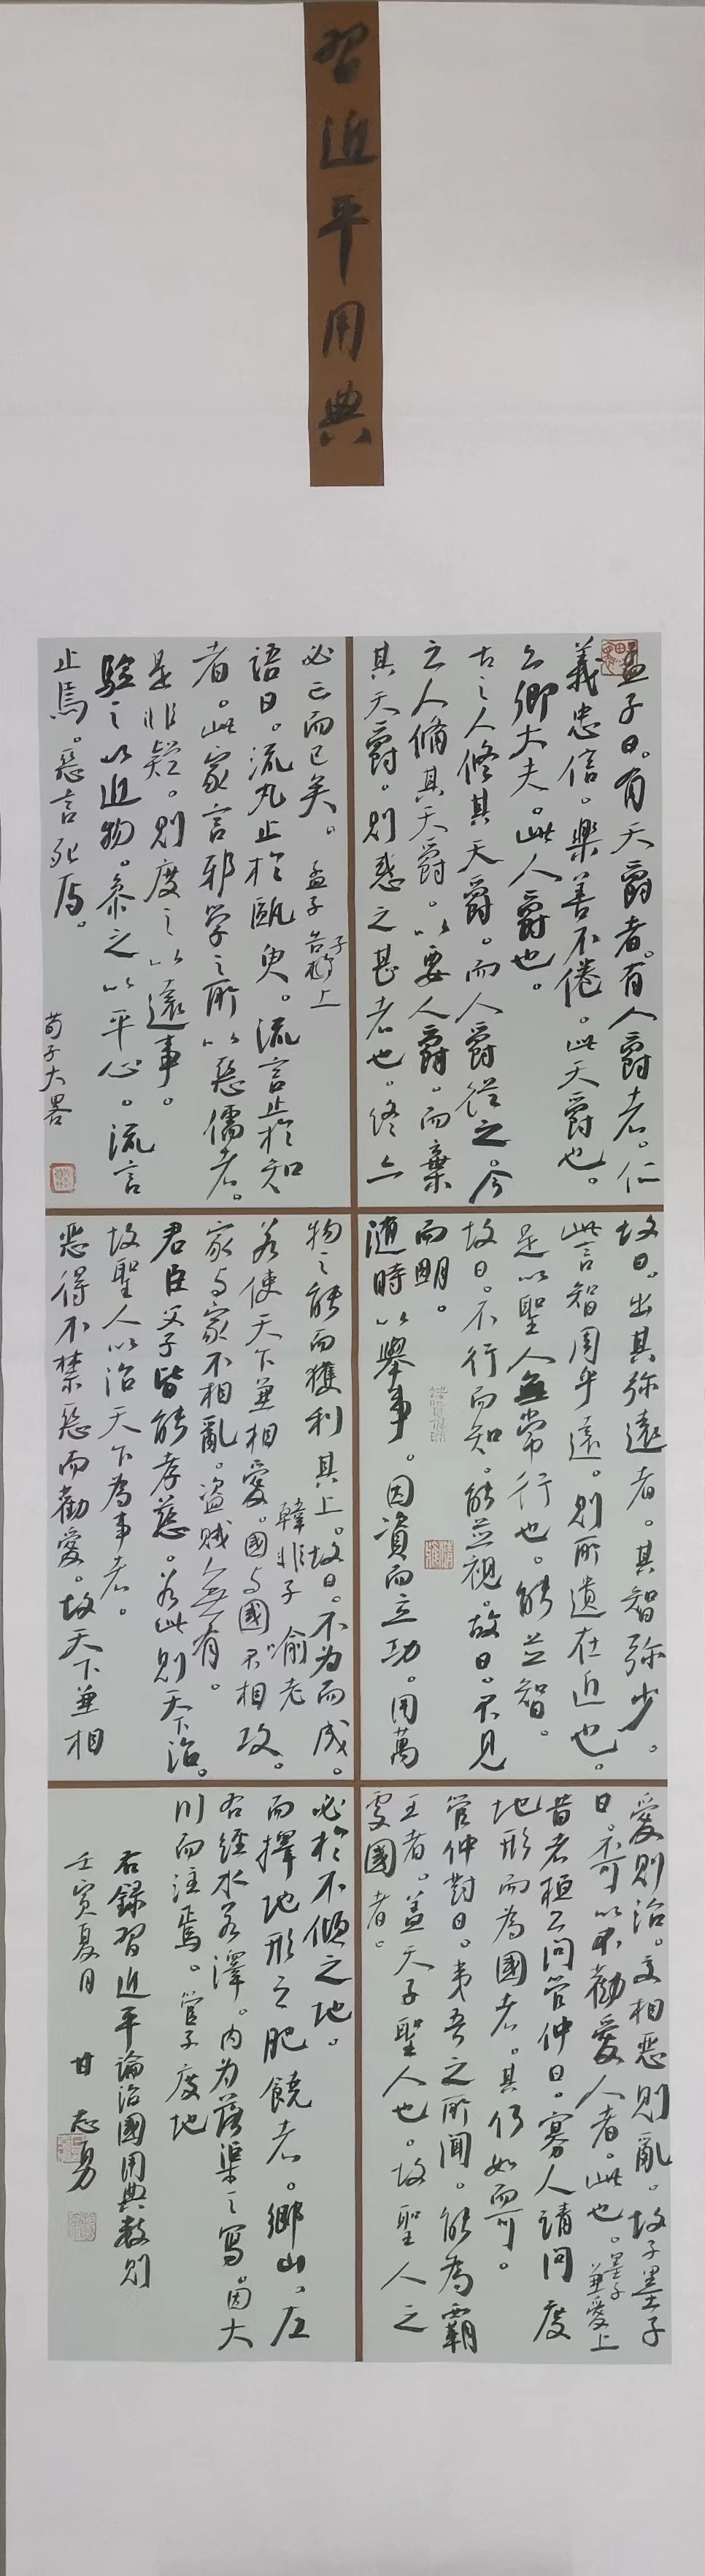 習近平用典
孟子曰。有天爵者。有人爵者。仁
義忠信。樂善不倦。此天爵也。
公卿大夫。此人爵也。
古之人修其天爵。而人爵從之。今
之人脩其天爵。以要人爵。而棄
其天爵。則惑之甚者也。終亦
必亡而已矣。孟子告子上
語曰。流丸止於甌臾。流言止於知
者。此家言邪學之所以惡儒者。
是非疑。則度之以遠事。
驗之以近物。參之以平心。流言
止焉。惡言死焉。
荀子大畧
故曰。出其弥遠者。其智弥少。
此言智周乎遠。則所遺在近也。
是以聖人無常行也。能並智。
故曰。不行而知。能並視。故曰。不見
而明。
隨時以舉事。因資而立功。用萬
物之能而獲利其上。故曰。不为而成。
韓非子喻老
若使天下兼相愛。國与國不相攻。
家与家不相亂。盜賊無有。
君臣父子皆能孝慈。若此則天下治。
故聖人以治天下為事者。
惡得不禁惡而勸愛。故天下兼相
愛則治。交相惡則亂。故子墨子
曰。不可以不勸愛人者。此也。墨子兼愛上
昔者桓公問管仲曰。寡人請問度
地形而為國者。其何如而可。
管仲對曰。夷吾之所聞。能為霸
王者。蓋天子聖人也。故聖人之
處國者。
必於不傾之地。
而擇地形之肥饒者。鄉山。左
右經水若澤。内为落渠之寫。因大
川而注焉。管子度地
右錄習近平論治國用典数則
壬寅夏月 甘志勇